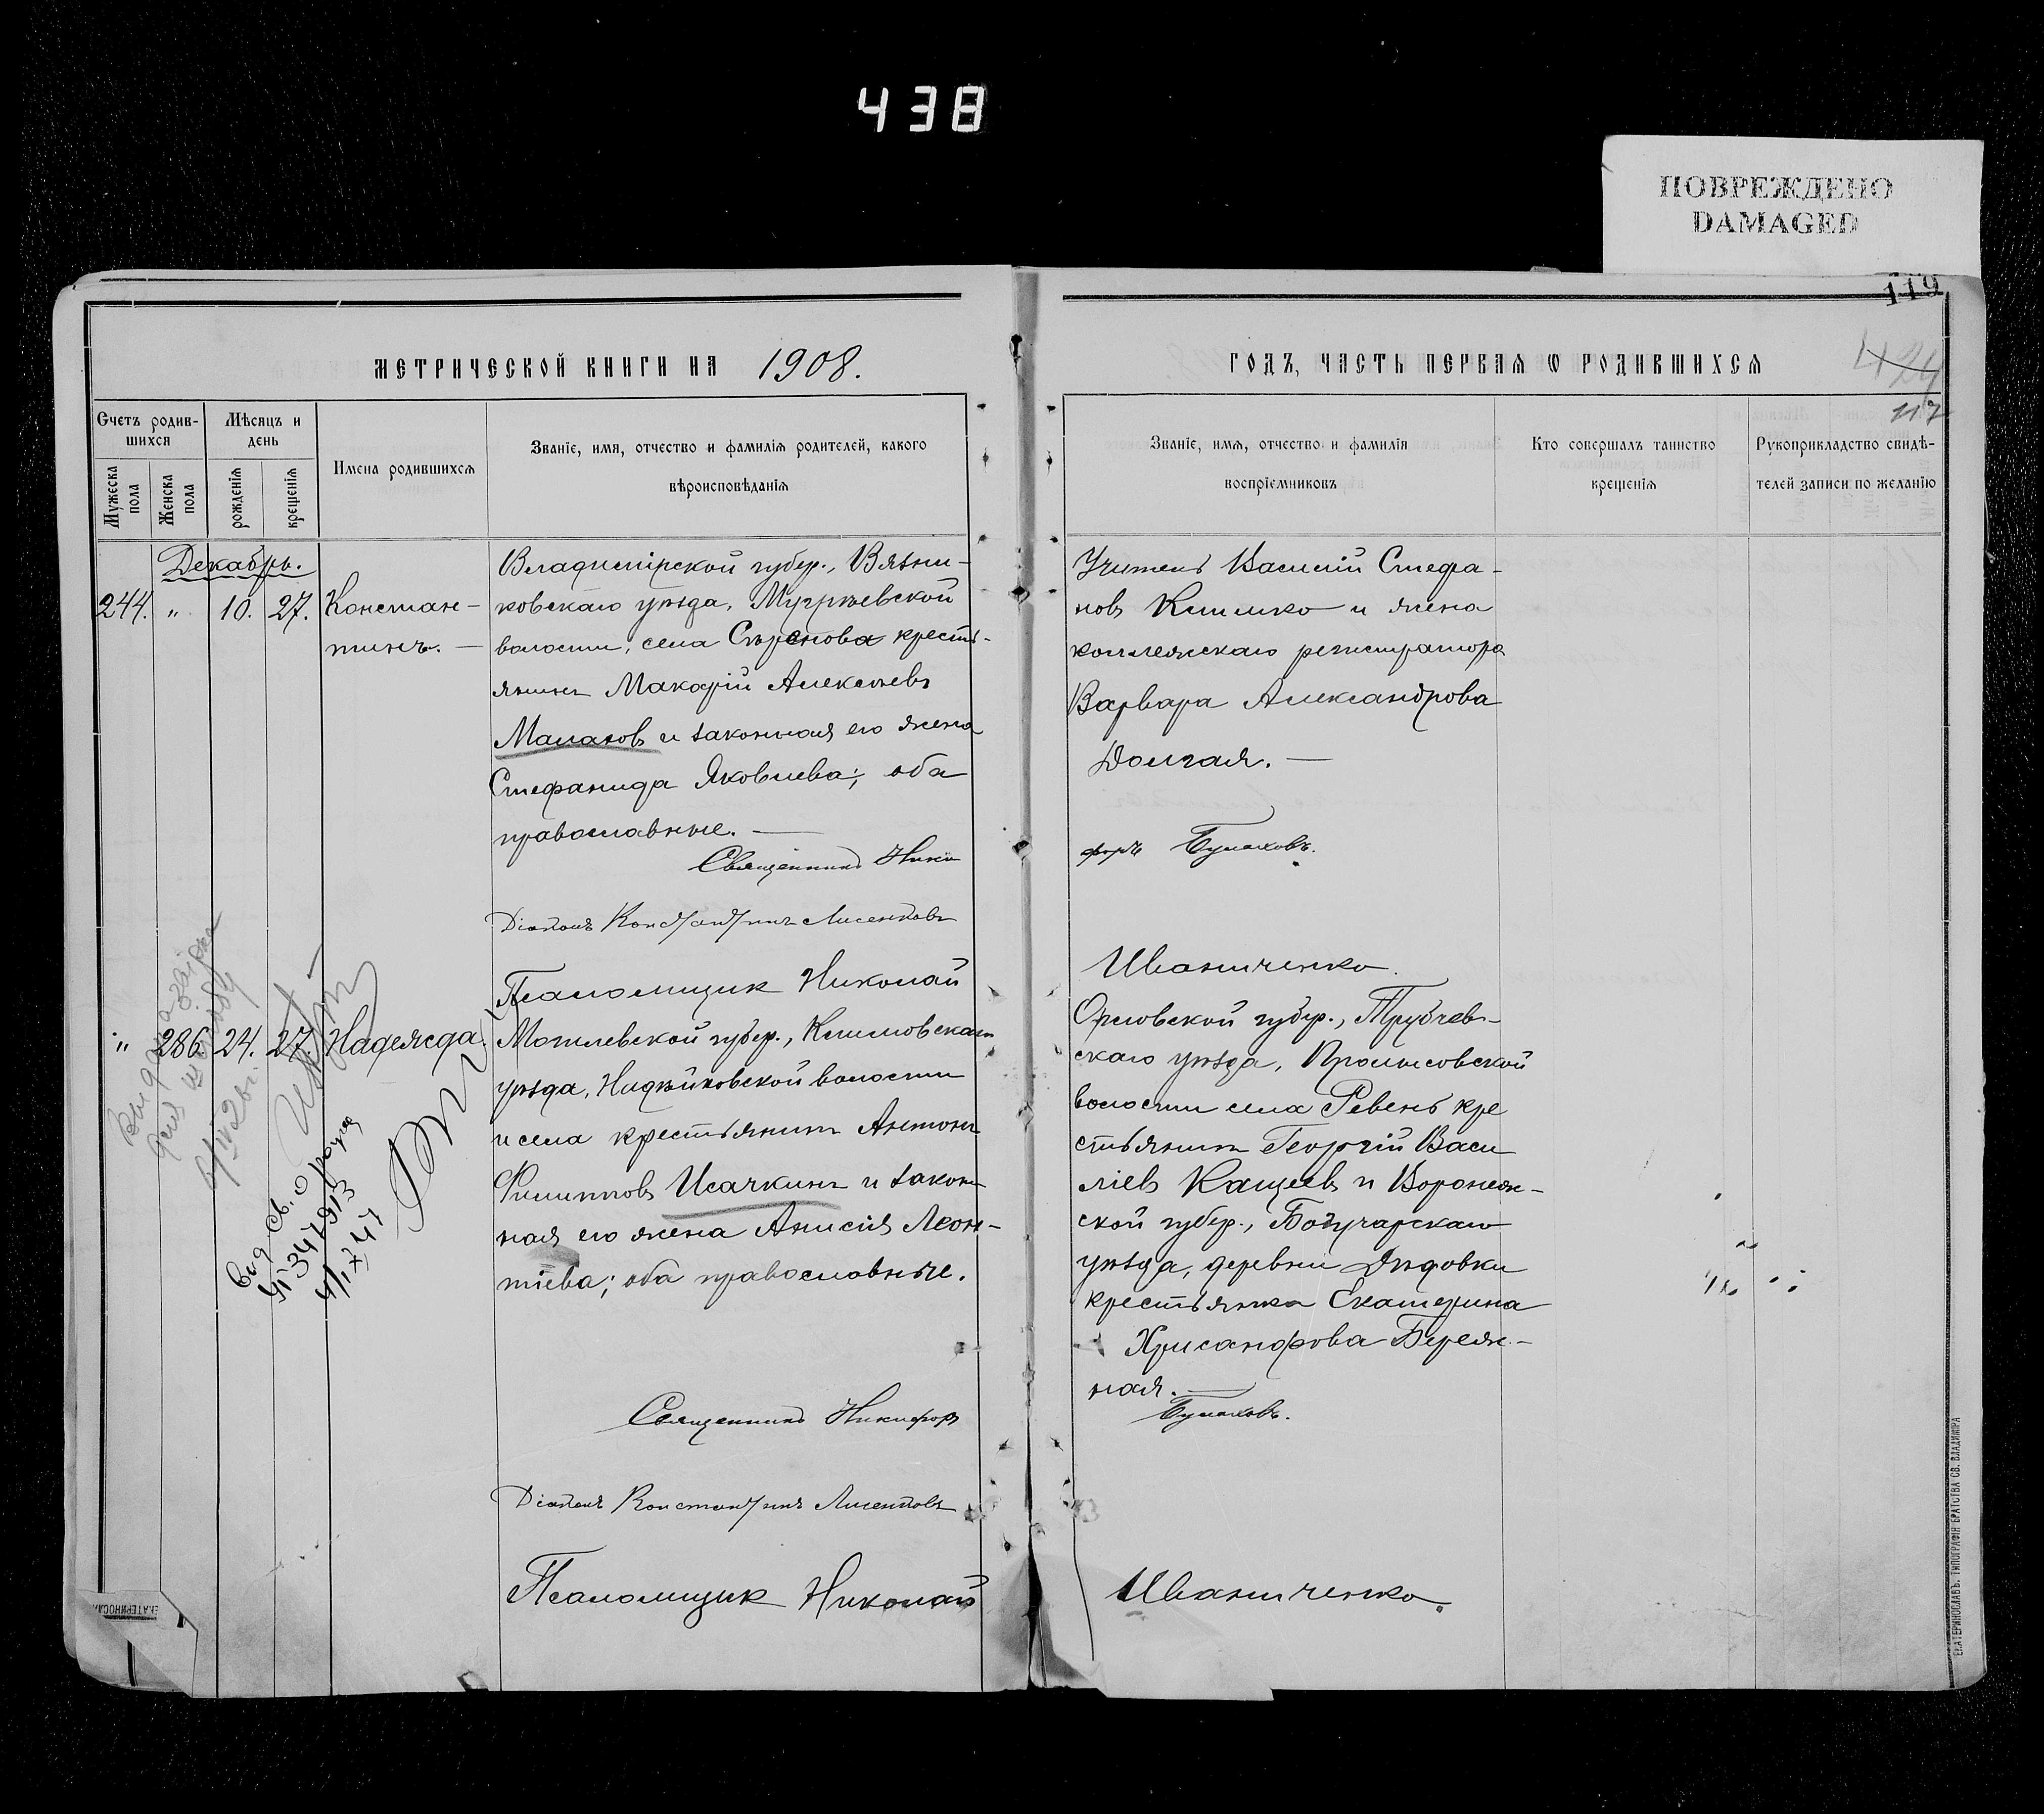 438
ПОВРЕЖДЕНО
DAMAGED
119
МЕТРИЧЕСКОЙ КНИГИ НА 1908.
ГОДЪ, ЧАСТЬ ПЕРВАЯ Ѡ РОДИВШИХСЯ
424
117
Счетъ родив-
шихся
Мѣсяцъ и
день
Мужеска
пола
Женска
пола
рожденія
крещенія
Имена родившихся
Званіе, имя, отчество и фамилія родителей, какого
вѣроисповѣданія
Званіе, имя, отчество и фамилія
воспріемниковъ
Кто совершалъ таинство
крещенія
Рукоприкладство свидѣ-
телей записи по желанію
Декабрь.
244. " 10. 27. Констан-
тинъ. —
Владимірской губер., Вязни-
ковскаго уѣзда, Мугрѣевской
волости, села кресть-
янинъ Макарій Алексѣевъ
Малаховъ и законная его жена
Стефанида Яковлева; оба
православные. —
Священникъ Ники
Діаконъ Константинъ Лисенковъ
Псаломщик Николай
Учитель Василій Стефа-
новъ Климко и жена
коллежскаго регистратора
Варвара Александрова
Долгая. —
форъ Булаховъ.
Иваниченко.
" 286. 24. 27. Надежда.
Могилевской губер., Климовскаго
уѣзда, волости
и села крестьянинъ Антонъ
Филипповъ Исачкинъ и закон
ная его жена Анисія Леон-
тіева; оба православные.
Священникъ Никифоръ
Діаконъ Константинъ Лисенковъ
Псаломщик Николай
Орловской губер., Трубчев-
скаго уѣзда,
волости села Ревенъ кре
стьянинъ Георгій Васи
ліевъ Кащеевъ и Воронеж-
ской губер., Богучарскаго
уѣзда, деревни Дядовки
крестьянка Екатерина
Хрисанфова Береж-
ная. —
Булаховъ.
Иваниченко.
ЕКАТЕРИНОСЛАВЪ. ТИПОГРАФІЯ БРАТСТВА СВ. ВЛАДИМІРА